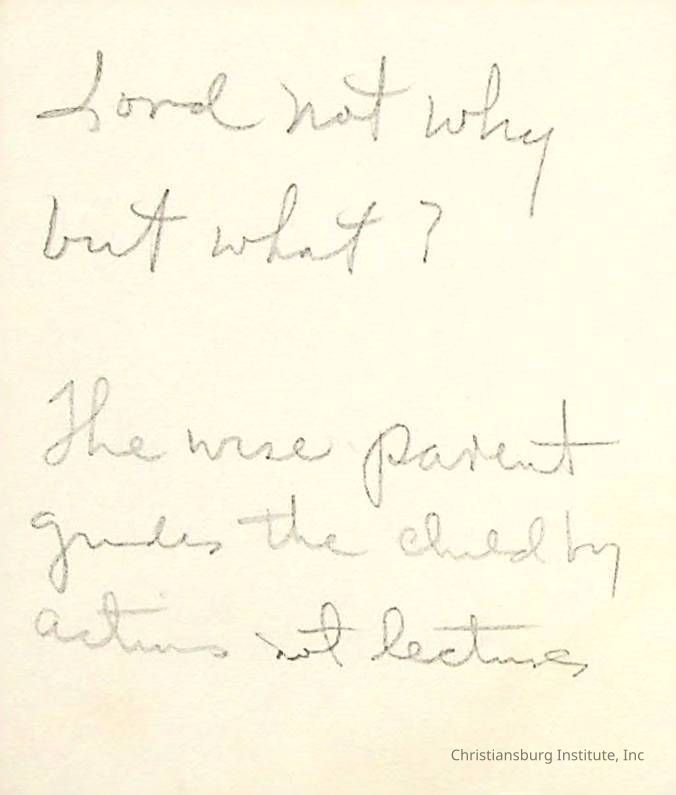 Lord not why
but what?
The wise parent
guides the child by
actions not lectures
Christiansburg Institute, Inc